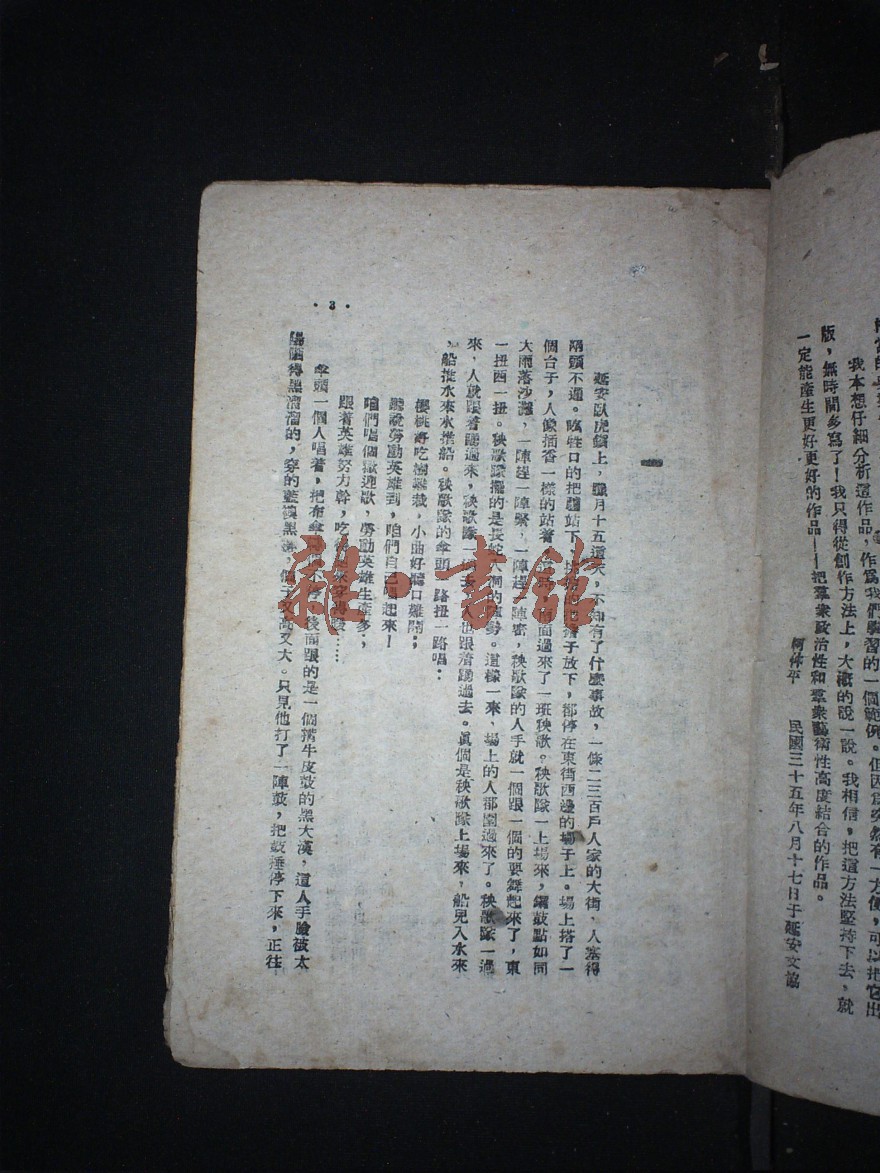 我本想仔細分析這作品,作爲我們學習的一個範例。但因爲突然有一方便,可以把它出
版,無時間多寫了!我只得從創作方法上,大概的說一說。我相信,把這方法堅持下去,就
一定能產生更好更好的作品——把羣衆政治性和羣衆藝術性高度結合的作品。
柯仲平 民國三十五年八月十七日于延安文協
一
延安臥虎鎮上,臘月十五這天,不知有了什麼事故,一條二三百戶人家的大街,人塞得
兩頭不過。吆牲口的把驢站下,放下,都停在東街西邊的場子上。場上搭了一
個台子,人像插香一樣的站着面過來了一班秧歌。秧歌隊一上場來,鑼鼓點如同
大雨落沙灘,一陣趕一陣緊,一陣趕一陣密,秧歌隊的人手就一個跟一個的耍舞起來了,東
一扭西一扭。秧歌隊擺的是長蛇的陣勢。這樣一來,場上的人都圍過來了。秧歌隊一過
來,人就跟着踴過來,秧歌隊一過去,人也跟着踴過去。眞個是秧歌隊上場來,船兒入水來
,船推水來水推船。秧歌隊的傘頭一路扭一路唱:
櫻桃好吃樹難栽,小曲好唱口難開;
聽說勞動英雄到,咱們自己唱起來!
咱們唱個歡迎歌,勞動英雄生產多;
跟着英雄努力幹,吃得起來穿得後……
傘頭一個人唱着,把布傘不停,後面跟的是一個揹牛皮鼓的黑大漢,這人手臉被太
陽晒得黑溜溜的,穿的藍襖黑,個子又高又大。只見他打了一陣鼓,把鼓捶停下來,正往
· 3 ·
雜·書館